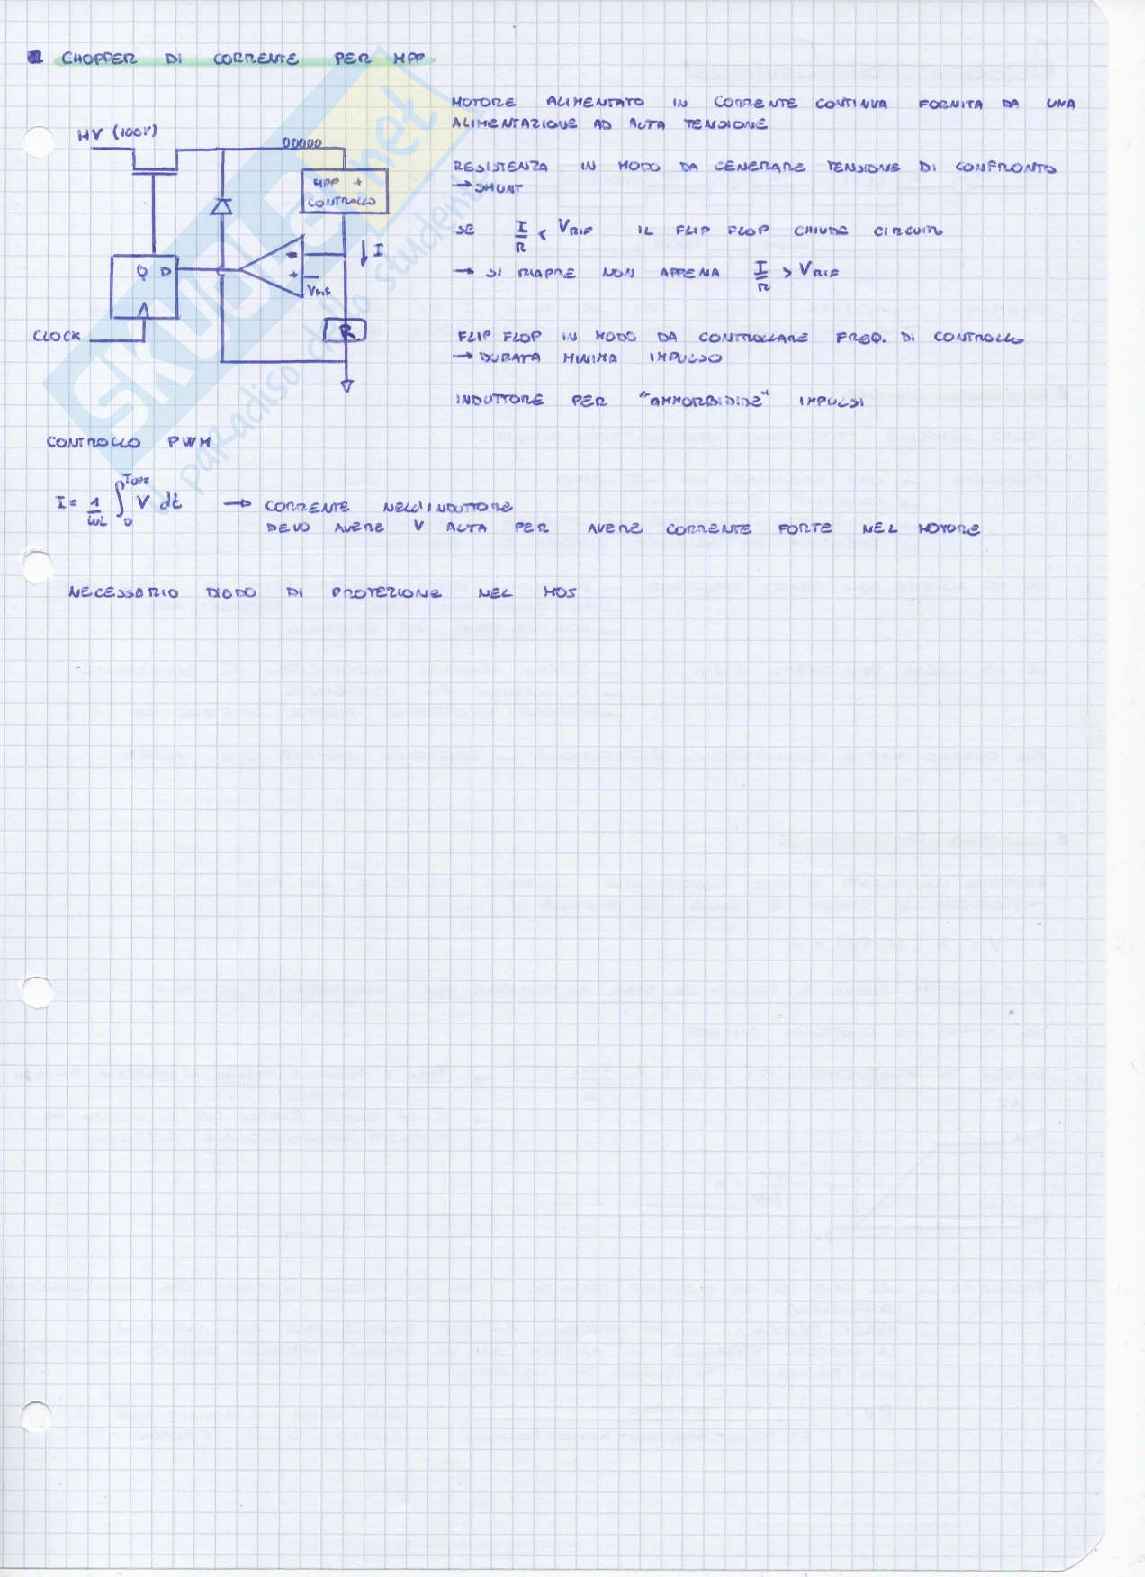 CHOPPER DI CORRENTE PER MPP
MOTORE ALIMENTATO IN CORRENTE CONTINUA FORNITA DA UNA
ALIMENTAZIONE AD ALTA TENSIONE
HV (100V)
RESISTENZA IN MODO DA GENERARE TENSIONE DI CONFRONTO
→ SHUNT
MPP +
CONTROLLO
SE I/R < VRIF IL FLIP FLOP CHIUDE CIRCUITO
→ SI RIAPRE NON APPENA I/R > VRIF
I
-
+
Q D
CLOCK
R
FLIP FLOP IN MODO DA CONTROLLARE FREQ. DI CONTROLLO
→ DURATA MINIMA IMPULSO
INDUTTORE PER "AMMORBIDIRE" IMPULSI
CONTROLLO PWM
I = 1/ωL ∫ V dt → CORRENTE NELL'INDUTTORE
DEVO AVERE V ALTA PER AVERE CORRENTE FORTE NEL MOTORE
NECESSARIO DIODO DI PROTEZIONE NEL MOS
SKUOLA.net
il paradiso dello studente